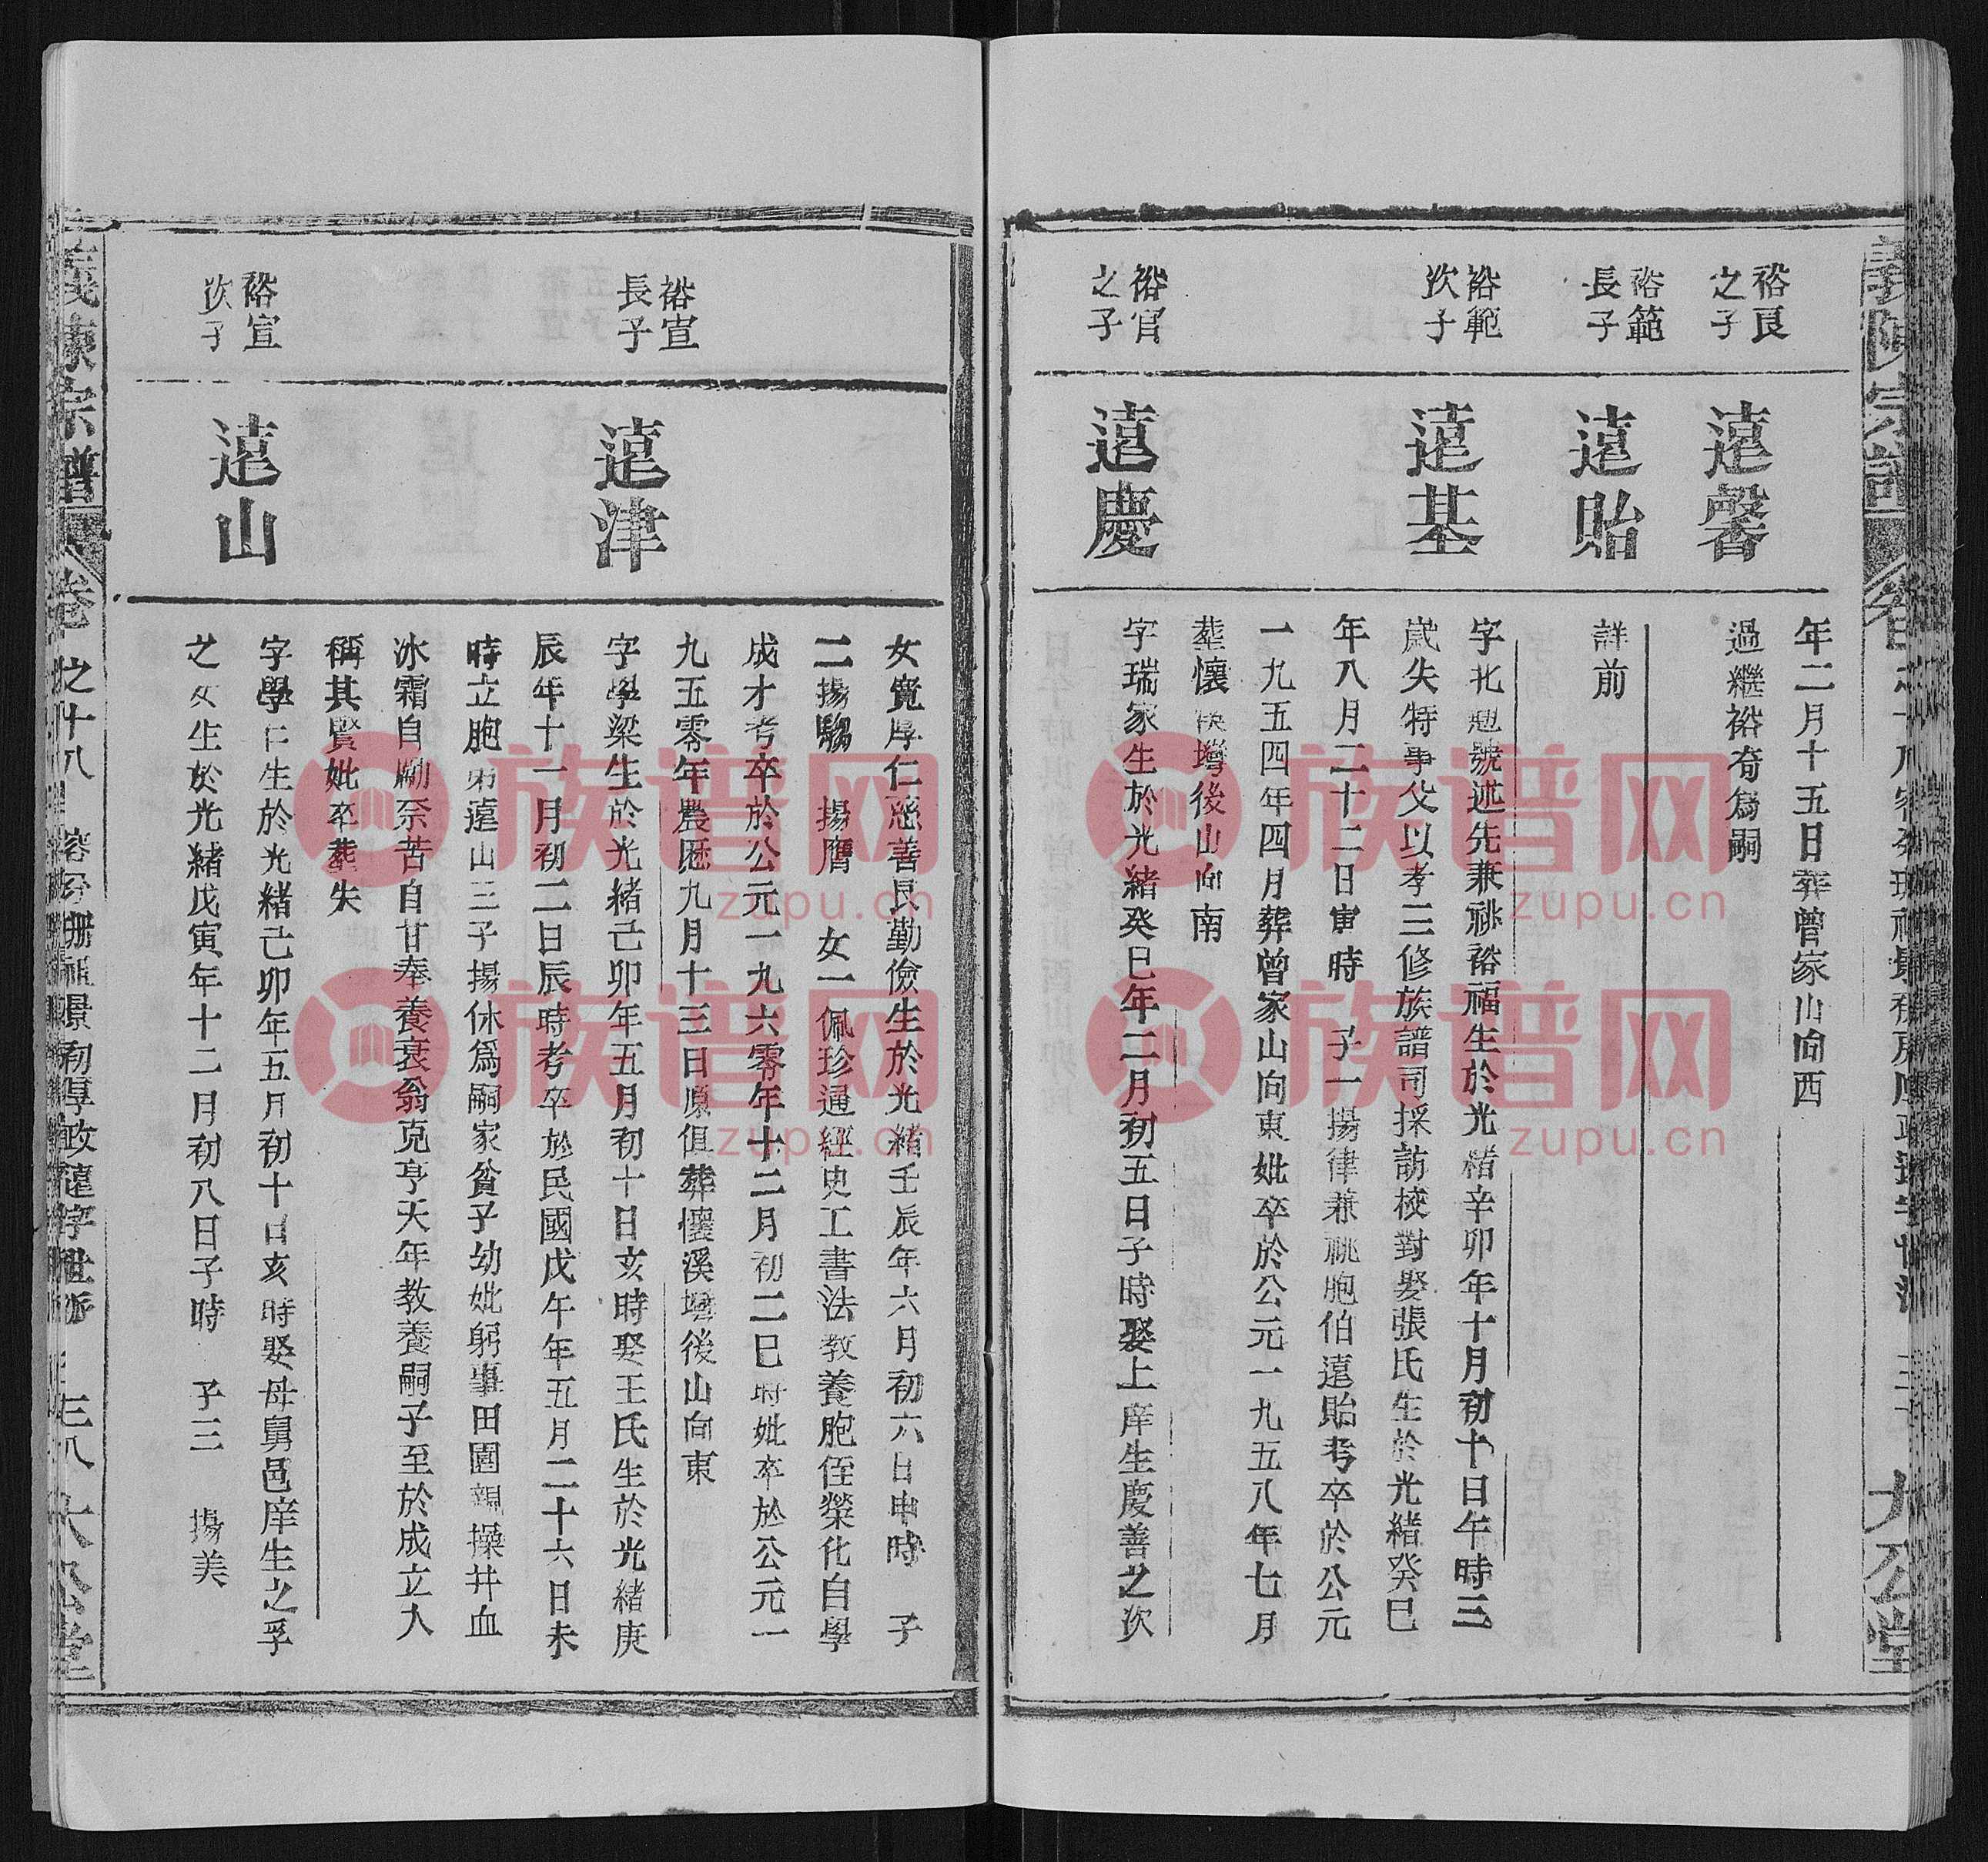 年二月十五日葬曾家山向西
裕良
之子
遠馨
過繼裕奇為嗣
裕範
長子
遠貽
詳前
裕範
次子
遠基
字北 號述先兼祧裕福生於光緒辛卯年十月初十日午時三
歲失特事父以孝三修族譜司採訪校對娶張氏生於光緒癸巳
年八月二十二日寅時 子一 揚律兼祧胞伯遠貽考卒於公元
一九五四年四月葬曾家山向東妣卒於公元一九五八年七月
葬懷 塆後山向南
裕官
之子
遠慶
字瑞家生於光緒癸巳年二月初五日子時娶上庠生慶善之次
女寬厚仁慈善良勤儉生於光緒壬辰年六月初六日申時 子
二揚騶 揚鷹 女一佩珍通經史工書法教養胞侄榮化自學
成才考卒於公元一九六零年十二月初二巳時妣卒於公元一
九五零年農歷九月十三日原俱葬懷溪塆後山向東
裕宣
長子
遠津
字學梁生於光緒己卯年五月初十日亥時娶王氏生於光緒庚
辰年十一月初二日辰時考卒於民國戊午年五月二十六日未
時立胞弟遠山三子揚休為嗣家貧子幼妣躬事田園親操井血
冰霜自勵奈苦自甘奉養衰翁克亨天年教養嗣子至於成立人
稱其賢妣卒葬失
裕宣
次子
遠山
字學仁生於光緒己卯年五月初十日亥時娶母舅邑庠生之孚
之女生於光緒戊寅年十二月初八日子時 子三 揚美
義陳宗譜
卷 之十八
三八
大公堂
義陳宗譜
大公堂
族谱网
zupu.cn
族谱网
zupu.cn
族谱网
zupu.cn
族谱网
zupu.cn